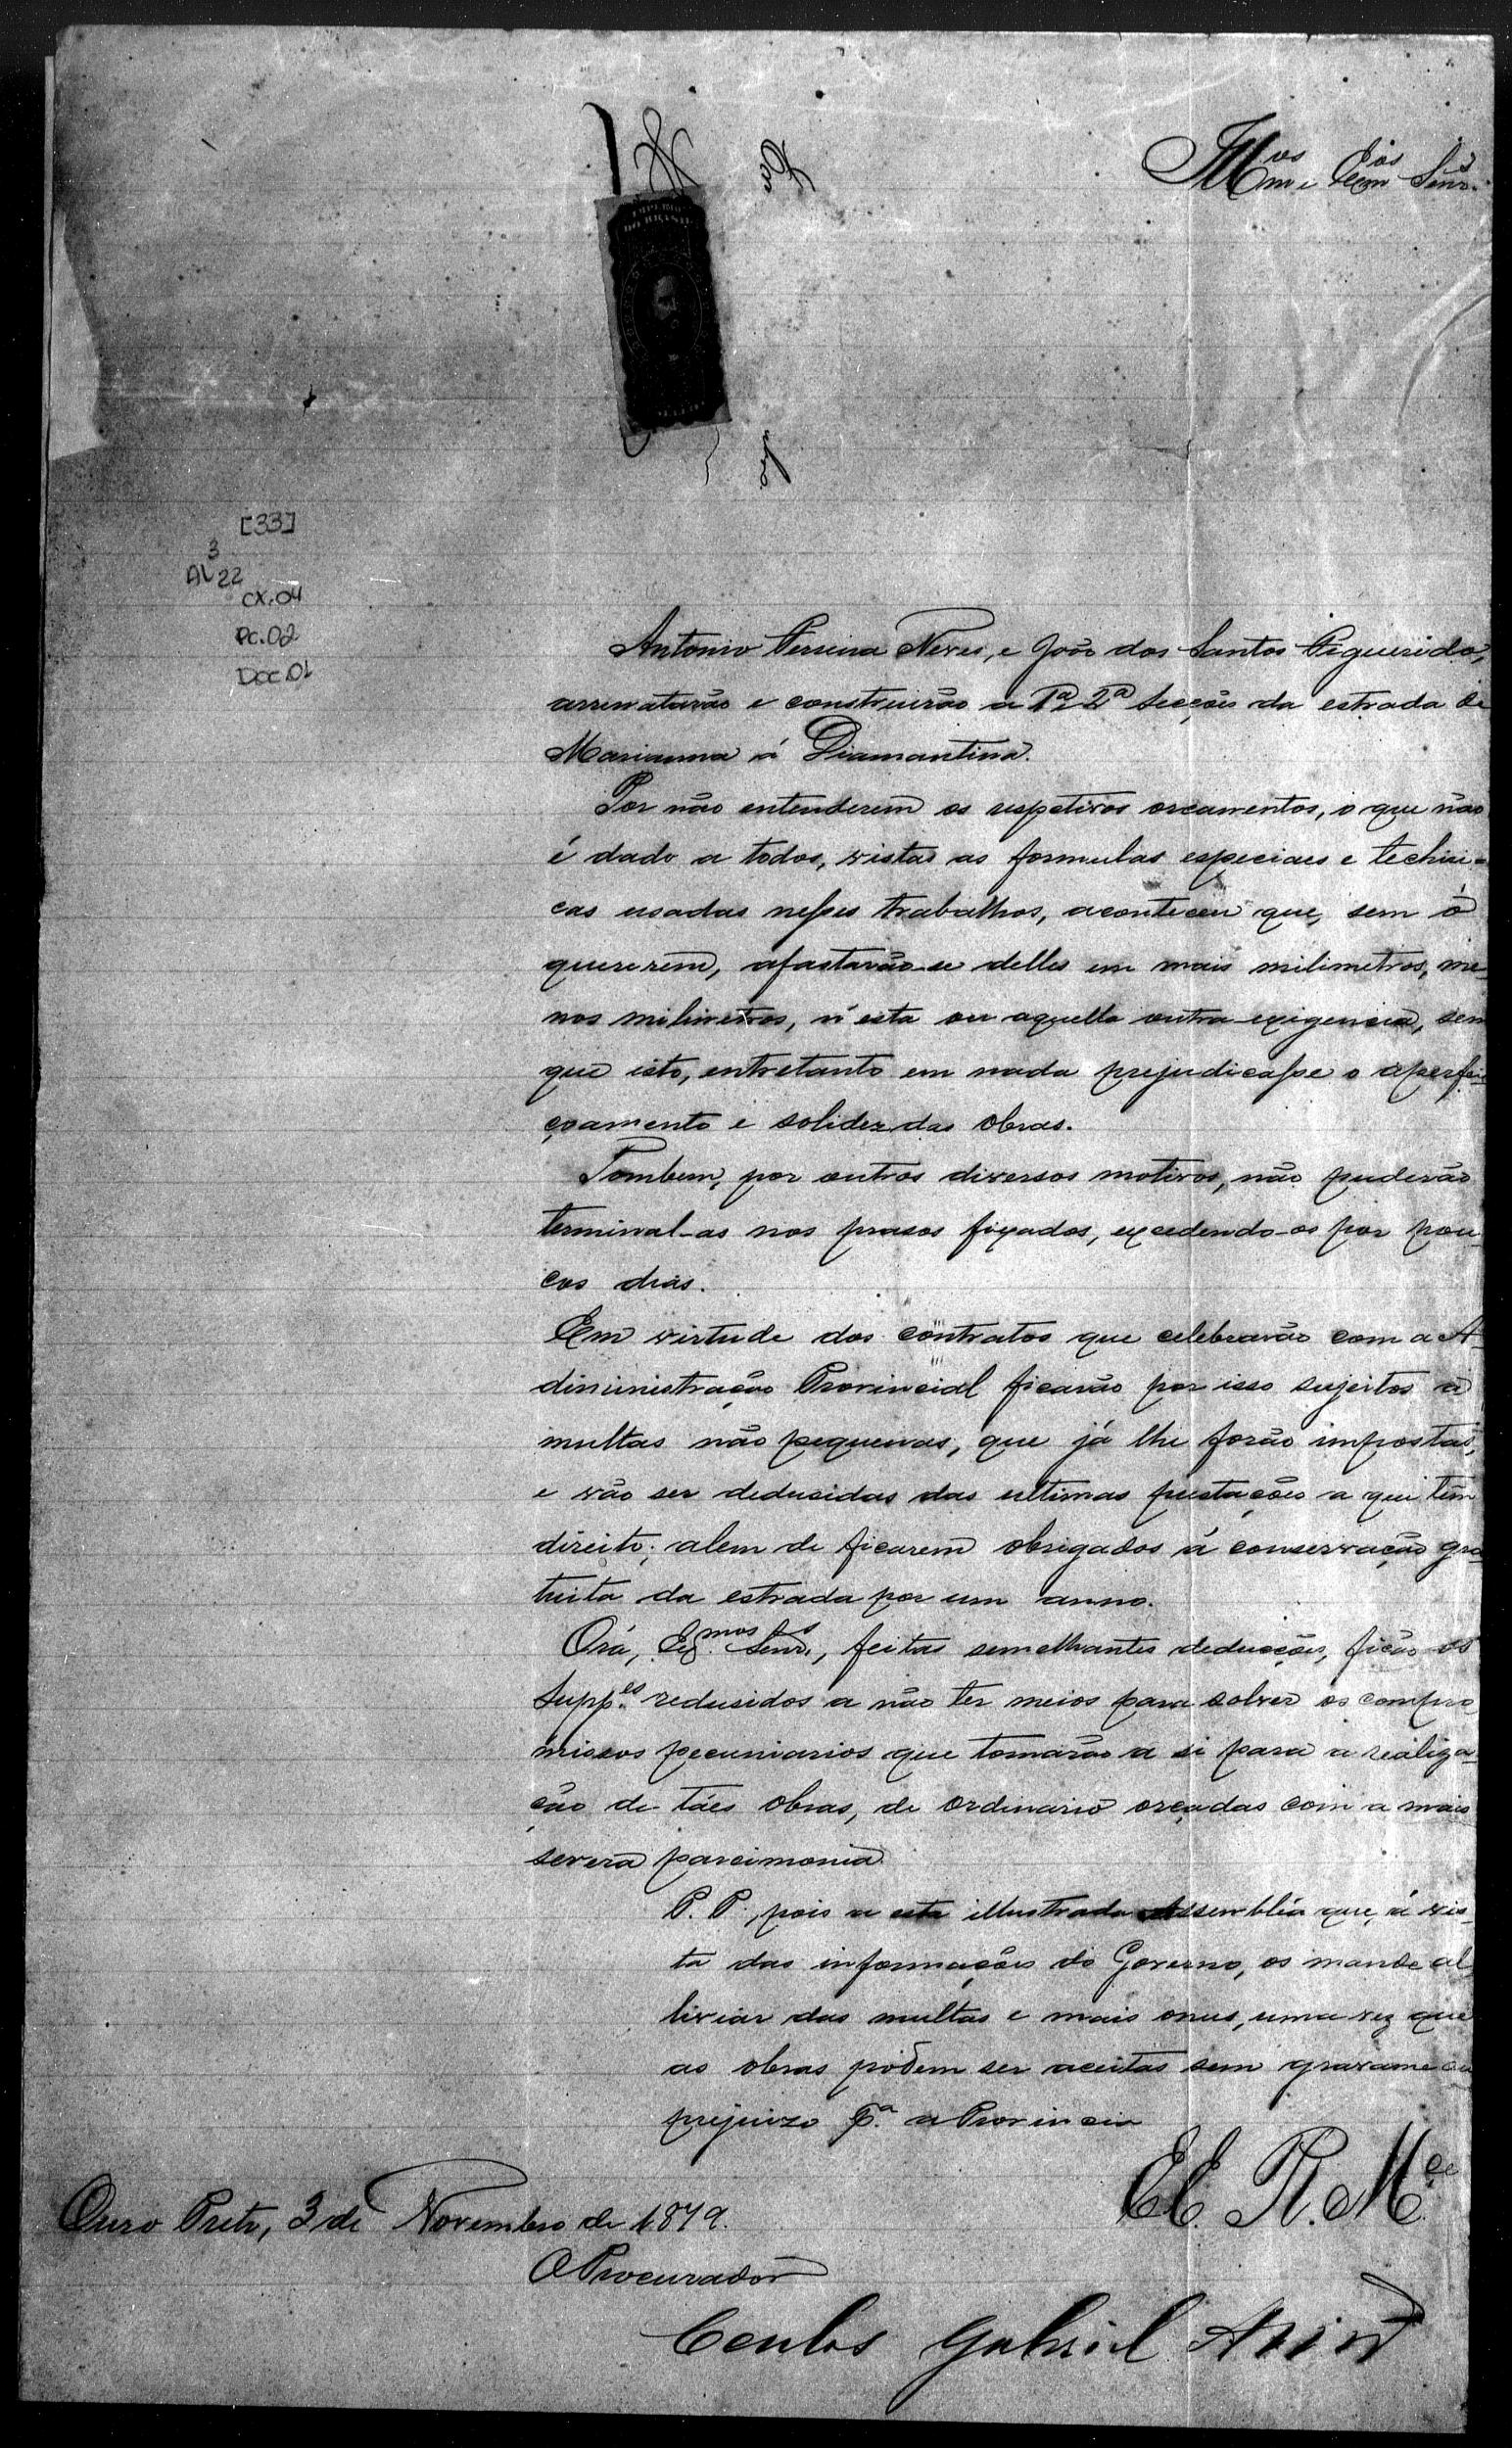 Ill.mos e Ex.mos Senr.s
IMPERIO
DO BRASIL
[33]
3
AL 22
CX.04
PC.02
Doc.01
Antonio Pereira Neves, e João dos Santos Figuerido,
arrematarão e construirão a 1ª e 2ª secções da estrada de
Marianna á Diamantina.
Por não entenderem os respetivos orcamentos, o que não
é dado a todos, vistas as formulas especiaes e techni-
cas usadas nesses trabalhos, aconteceu que, sem o
quererem, afastarão-se delles em mais milimetros, me-
nos milimetros, n'esta ou aquella outra exigencia, sem
que isto, entretanto em nada prejudicasse o aperfei-
çoamento e solidez das obras.
Tambem, por outros diversos motivos, não puderão
terminal-as nos prasos fixados, excedendo-os por pou-
cos dias.
Em virtude dos contratos que celebrarão com a A-
diministração Provincial ficarão por isso sujeitos á
multas não pequenas, que já lhe forão impostas,
e vão ser dedusidas das ultimas prestações a que têm
direito; alem de ficarem obrigados á conservação gra-
tuita da estrada por um anno.
Orá, Ex.mos Senr.s, feitas semelhantes deducções, ficão os
Supp.es redusidos a não ter meios para solver os compro-
missos pecuniarios que tomarão a si para a realiza-
ção de táes obras, de ordinario orçadas com a mais
severa parcimonia.
P. P., pois a esta illustrada Assembléa que, á vis-
ta das informações do Governo, os mande al-
liviar das multas e mais onus, uma vez que
as obras pódem ser aceitas sem gravame ou
prejuizo p.ª a Provincia
EE. R. M.ce
Ouro Preto, 3 de Novembro de 1879.
O Procurador
Carlos Gabriel